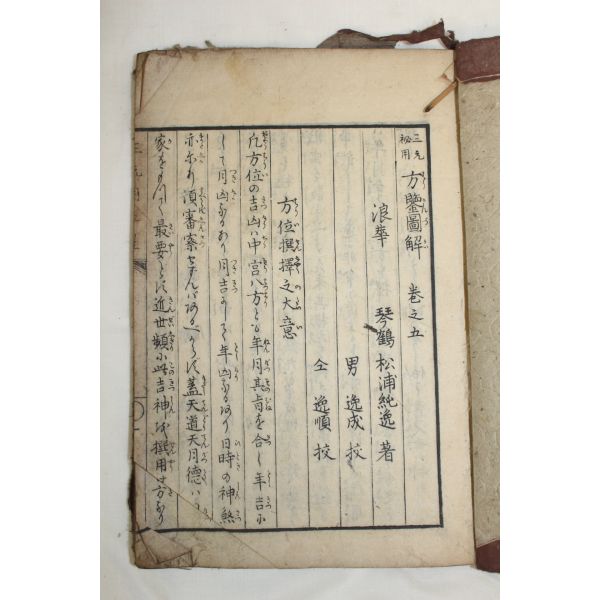 三元秘用 方鑒圖解 巻之五
浪華 琴鶴 松浦純逸 著
男 逸成 挍
仝 逸順 挍
方位撰擇之大意
凡方位の吉凶ハ中宮八方とも年月其肯を合し年吉に
して月凶なるあり月吉にして年凶なるあり日時の神煞
亦尓り須審察せずんバあるべからず蓋天道天月德ハ
家をして最要とす近世頻に此吉神を撰用せ方あり